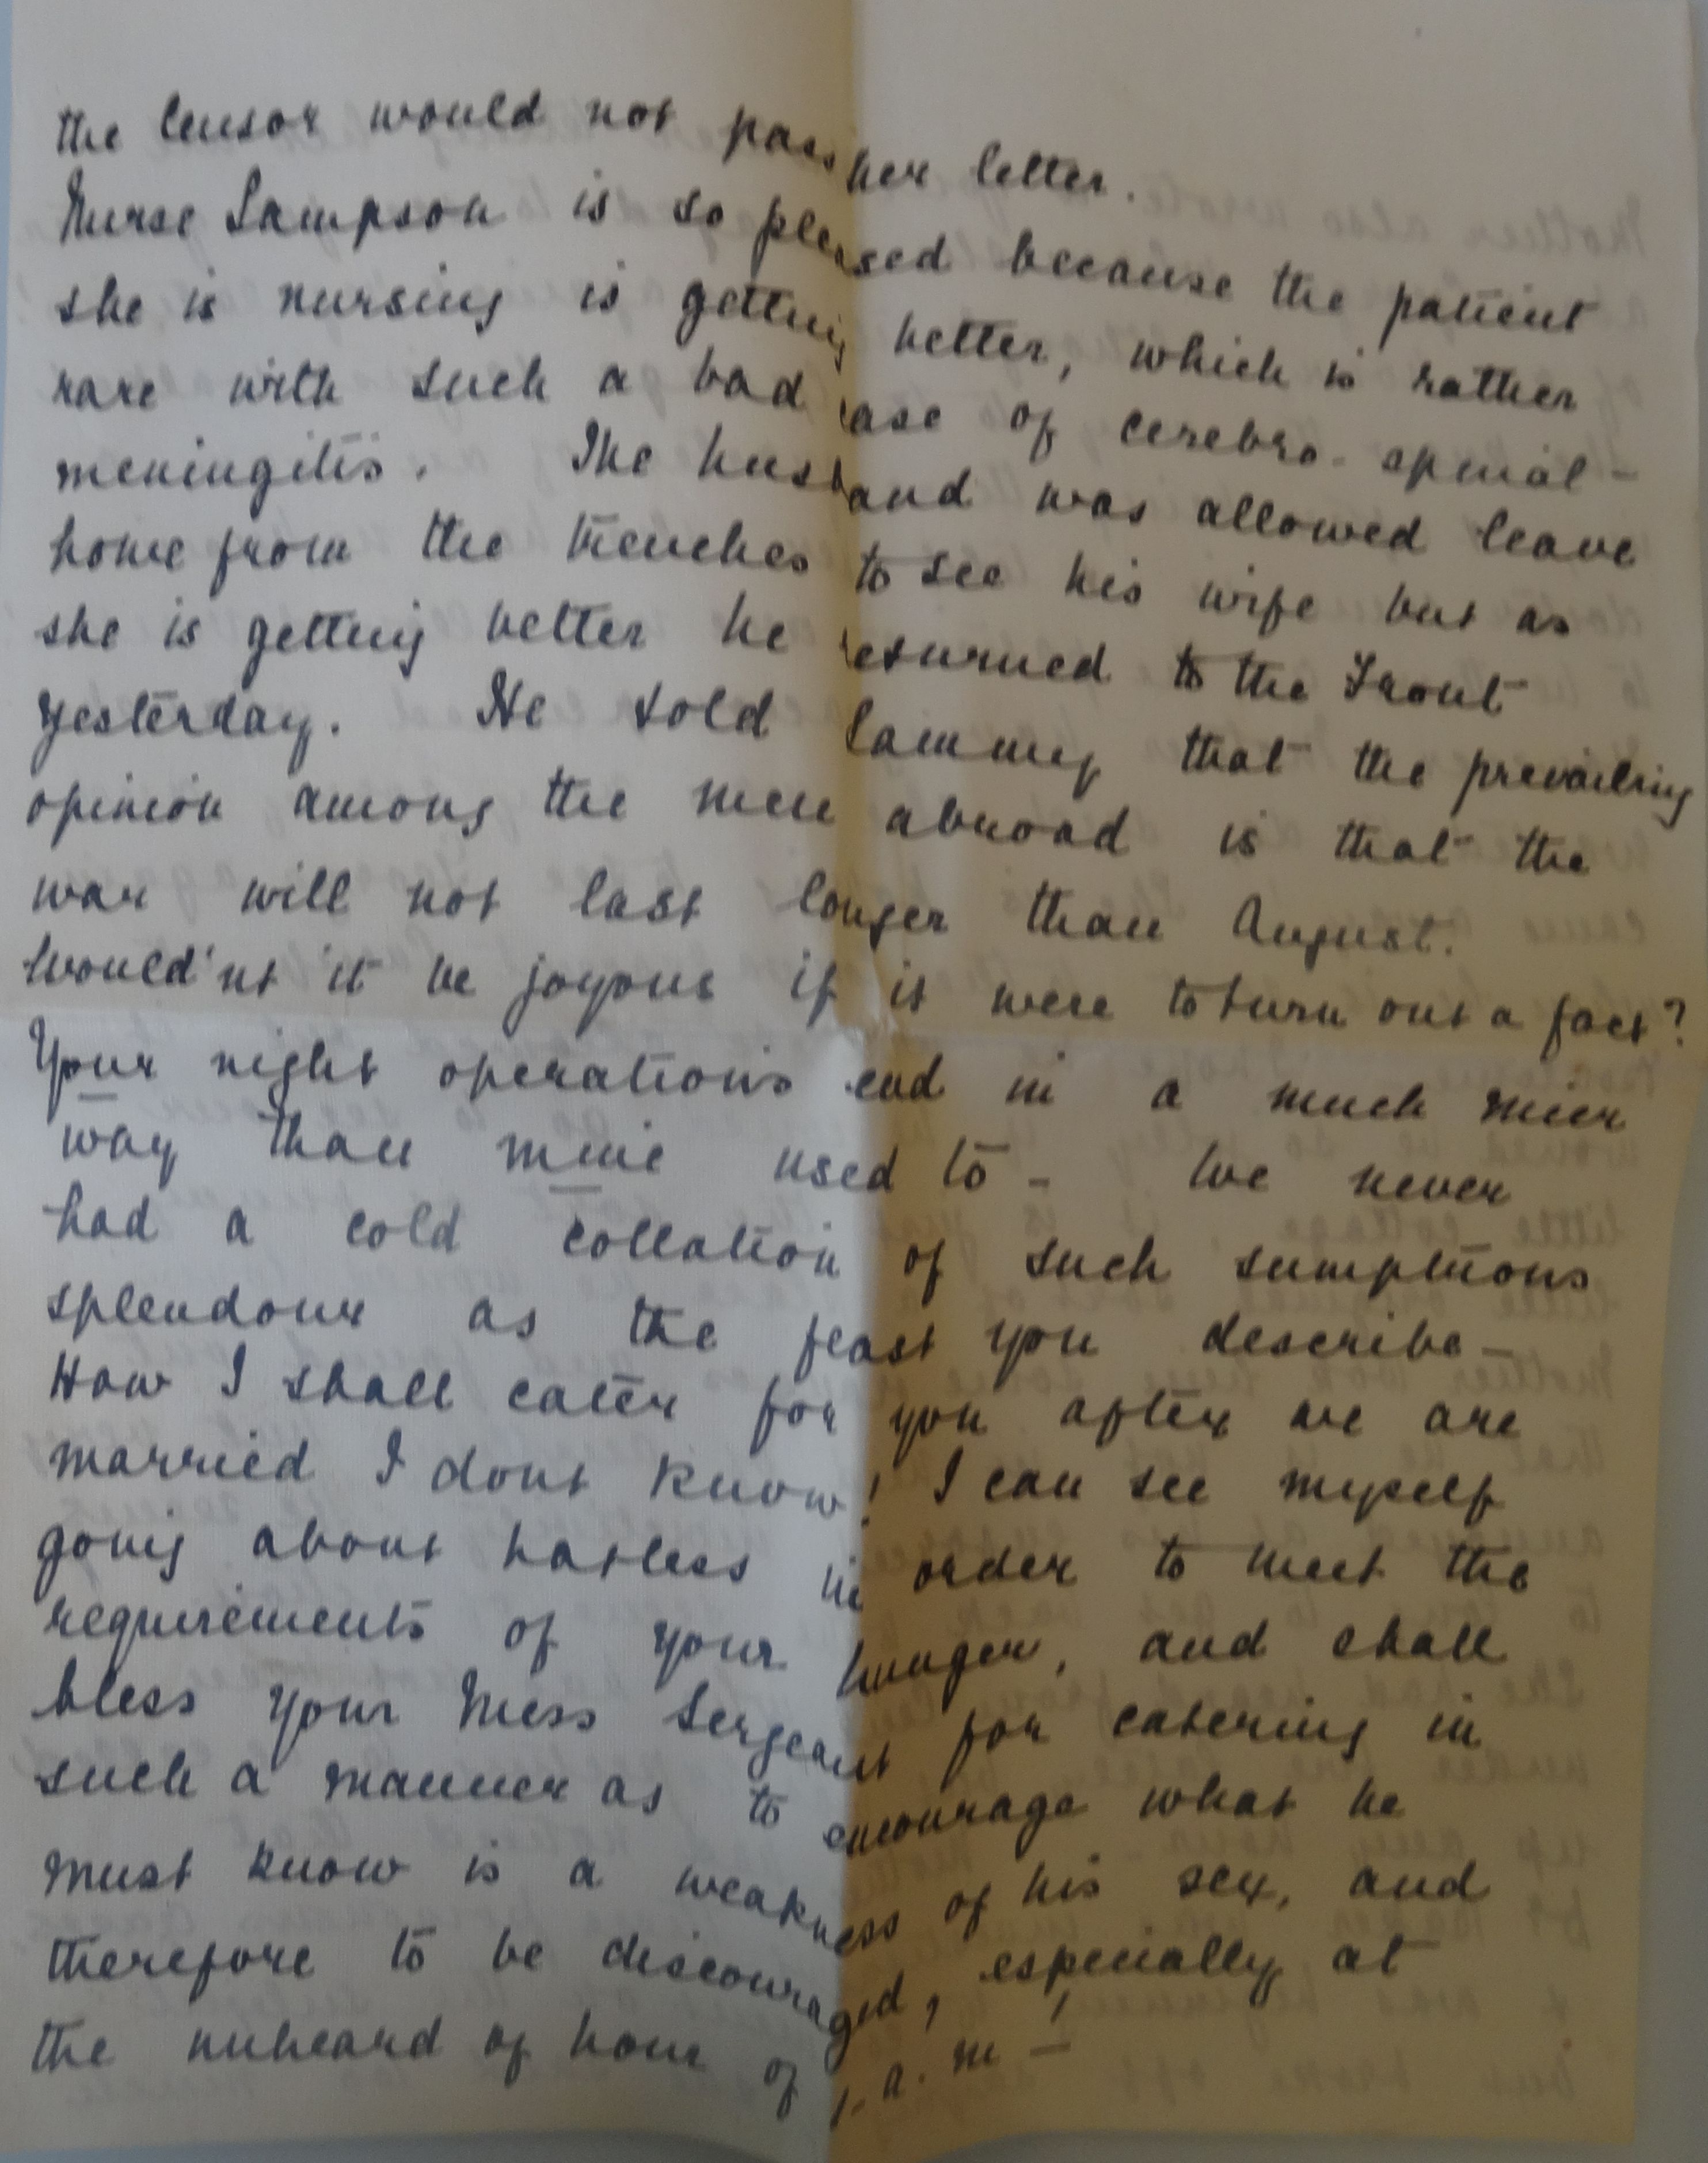 the Censor would not pass her letter.
Nurse Sampson is so pleased because the patient
she is nursing is getting better, which is rather
rare with such a bad case of cerebro-spinal-
meningitis. The husband was allowed leave
home from the trenches to see his wife but as
she is getting better he returned to the Front
yesterday. He told Sammy that the prevailing
opinion among the men abroad is that the
war will not last longer than August.
Would'nt it be joyous if it were to turn out a fact?
Your night operations end in a much nicer
way than mine used to - We never
had a cold collation of such sumptuous
splendour as the feast you describe -
How I shall cater for you after we are
married I dont know! I can see myself
going about hatless in order to meet the
requirements of your hunger, and shall
bless your Mess Sergeant for catering in
such a manner as to encourage what he
must know is a weakness of his sex, and
therefore to be discouraged, especially at
the unheard of hour of 1. a. m -